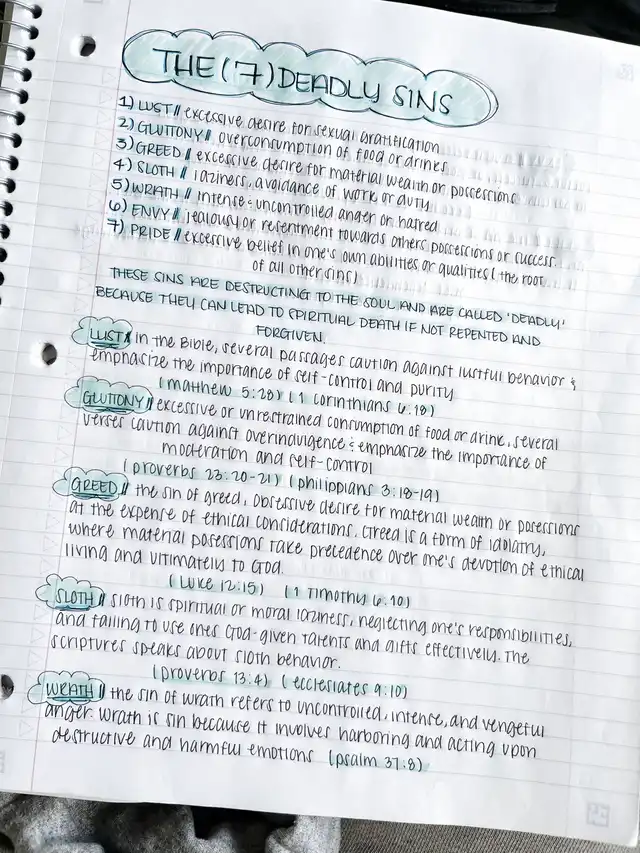 THE (7) DEADLY SINS
1) LUST // excessive desire for sexual gratification
2) GLUTTONY // overconsumption of food or drinks
3) GREED // excessive desire for material wealth or possessions
4) SLOTH // laziness, avoidance of work or duty
5) WRATH // intense & uncontrolled anger or hatred
6) ENVY // jealousy or resentment towards others possessions or success.
7) PRIDE // excessive belief in one's own abilities or qualities (the root
of all other sins)
THESE SINS ARE DESTRUCTING TO THE SOUL AND ARE CALLED 'DEADLY'
BECAUSE THEY CAN LEAD TO SPIRITUAL DEATH IF NOT REPENTED AND
FORGIVEN.
LUST // in the Bible, several passages caution against lustful behavior &
emphasize the importance of self-control and purity
(matthew 5:28) (1 corinthians 6:18)
GLUTTONY // excessive or unrestrained consumption of food or drink, several
verses caution against overindulgence & emphasize the importance of
moderation and self-control
(proverbs 23:20-21) (philippians 3:18-19)
GREED // the sin of greed, obsessive desire for material wealth or posessions
at the expense of ethical considerations. Greed is a form of idolatry,
where material posessions take precedence over one's devotion of ethical
living and ultimately to God.
(Luke 12:15) (1 Timothy 6:10)
SLOTH // sloth is spiritual or moral laziness, neglecting one's responsibilities,
and failing to use ones God-given talents and gifts effectively. The
scriptures speaks about sloth behavior.
(proverbs 13:4) (ecclesiates 9:10)
WRATH // the sin of wrath refers to uncontrolled, intense, and vengeful
anger. Wrath is sin because it involves harboring and acting upon
destructive and harmful emotions (psalm 37:8)